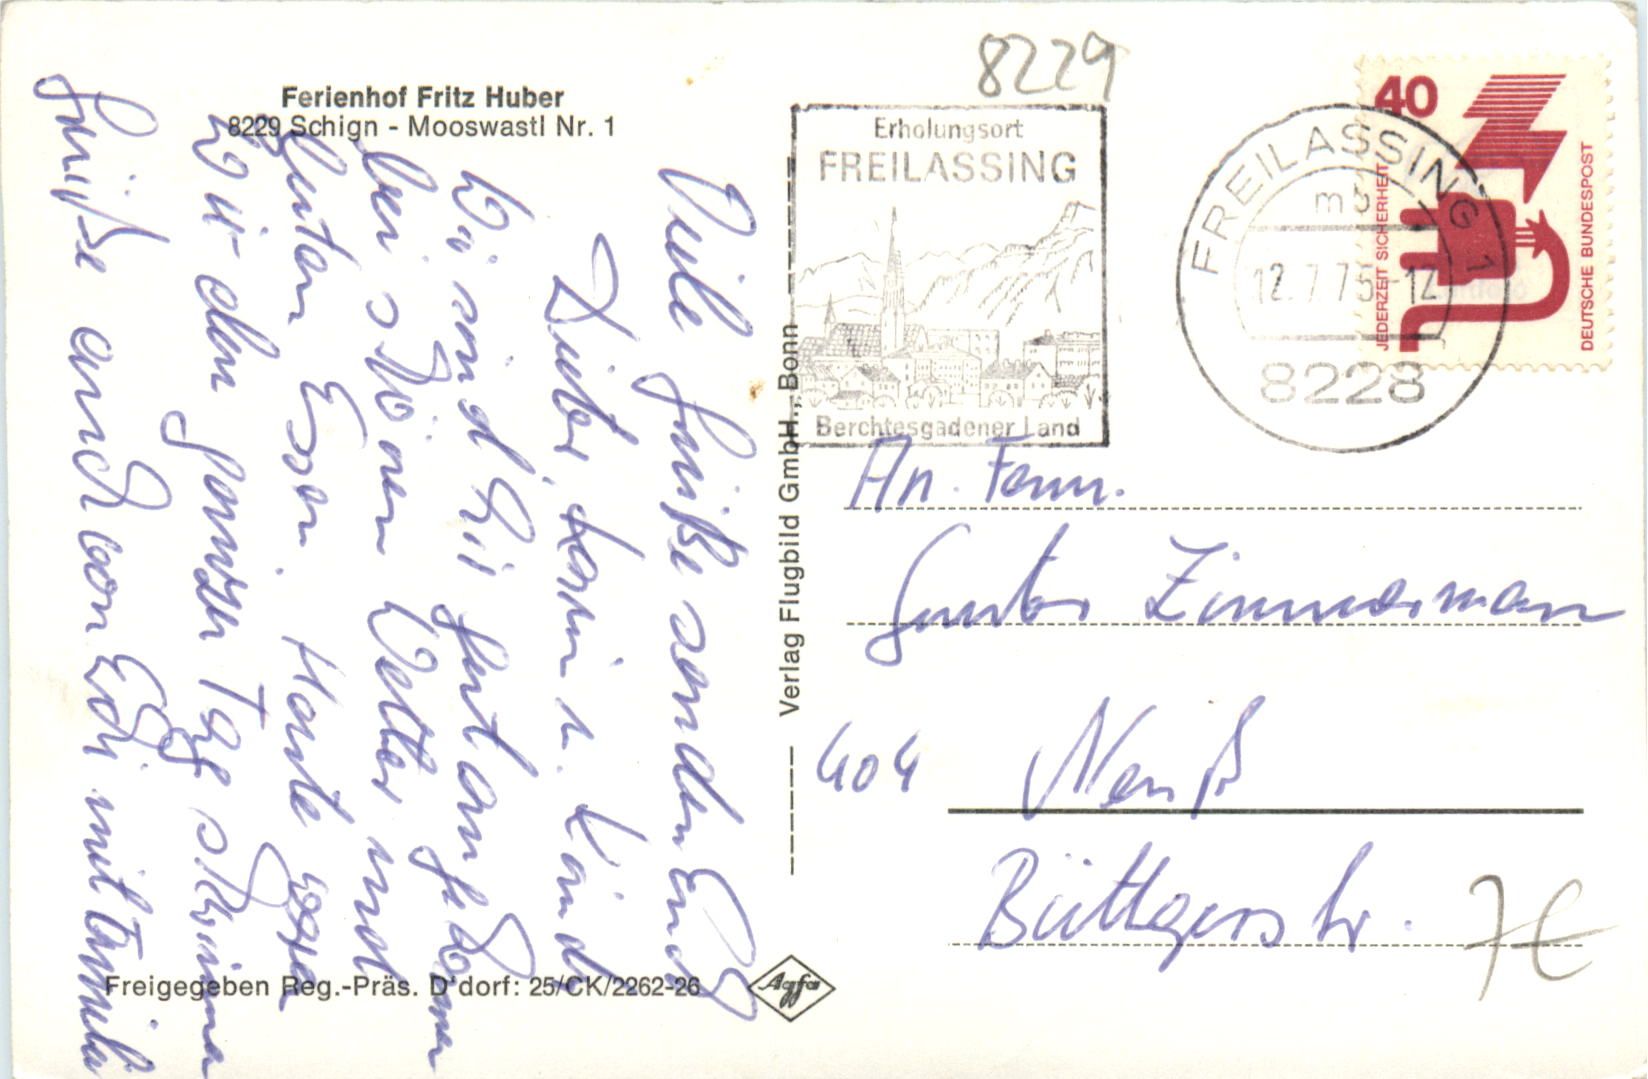 Ferienhof Fritz Huber
8229 Schign - Mooswastl Nr. 1
Viele Grüße senden Euch
Dieter, Karin u. Kind
Wir sind hir gut angekommen
bei schönen Wetter und
guten Essen. Heute
Wir den ganzen Tag schwimmen
Grüße auch von Edi mit Familie
Freigegeben Reg.-Präs. D'dorf: 25/CK/2262-26
Agfa
Verlag Flugbild GmbH., Bonn
8229
Erholungsort
FREILASSING
Berchtesgadener Land
FREILASSING 1
mb
12.7.75-12
8228
40
JEDERZEIT SICHERHEIT
DEUTSCHE BUNDESPOST
An. Fam.
Zimmermann
404 Neuß
Büttgerstr.
7€